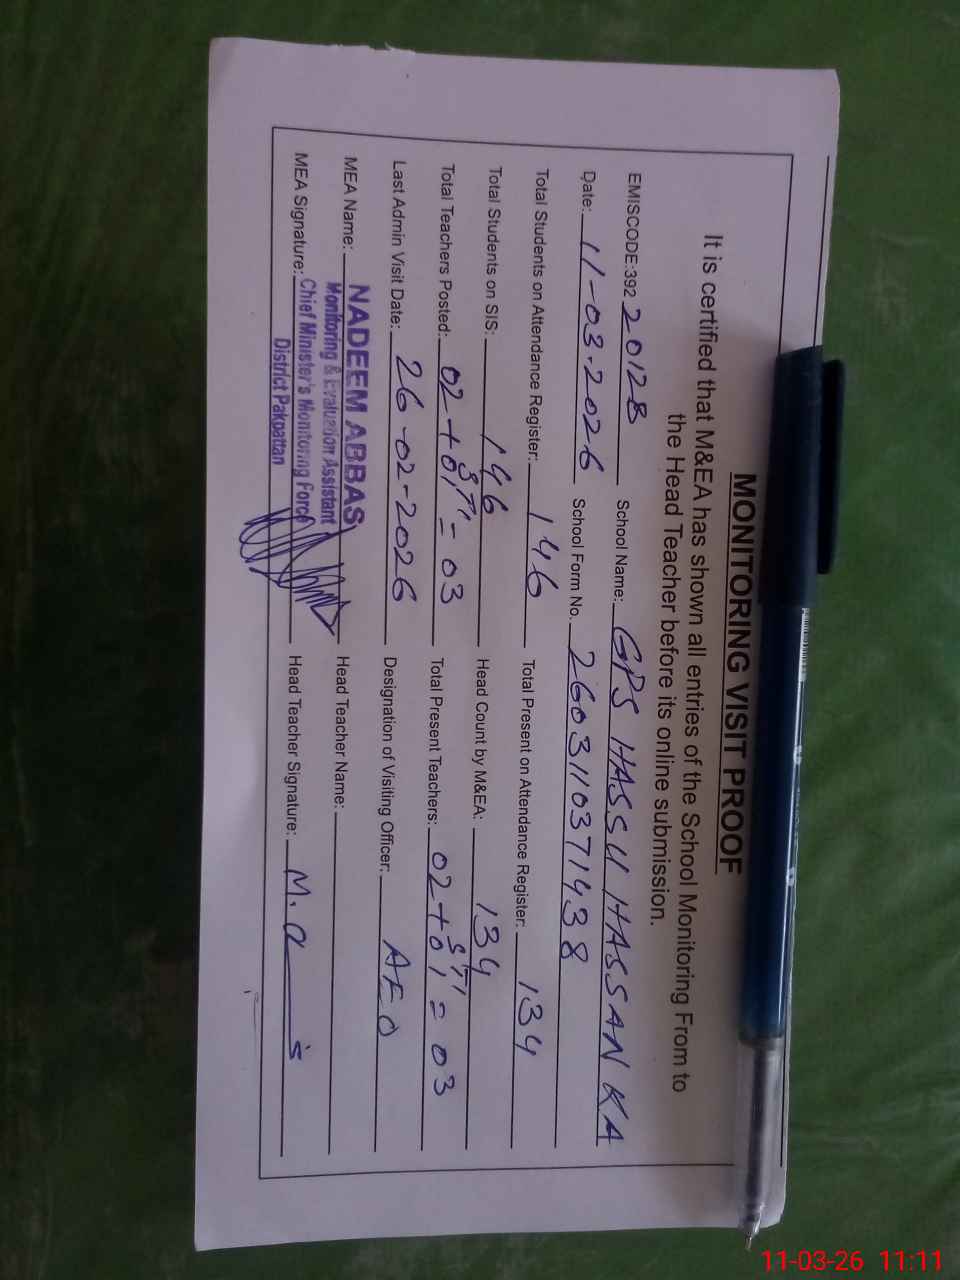 MONITORING VISIT PROOF
It is certified that M&EA has shown all entries of the School Monitoring From to
the Head Teacher before its online submission.
EMISCODE:392 20128 School Name: GPS HASSU HASSAN KA
Date: 11-03-2026 School Form No. 2603110371438
Total Students on Attendance Register: 146 Total Present on Attendance Register: 134
Total Students on SIS: 146 Head Count by M&EA: 134
Total Teachers Posted: 02+01 STI = 03 Total Present Teachers: 02+01 STI = 03
Last Admin Visit Date: 26-02-2026 Designation of Visiting Officer: AEO
MEA Name: NADEEM ABBAS Head Teacher Name:
Monitoring & Evaluation Assistant
MEA Signature: Chief Minister's Monitoring Force Head Teacher Signature:
District Pakpattan
11-03-26 11:11